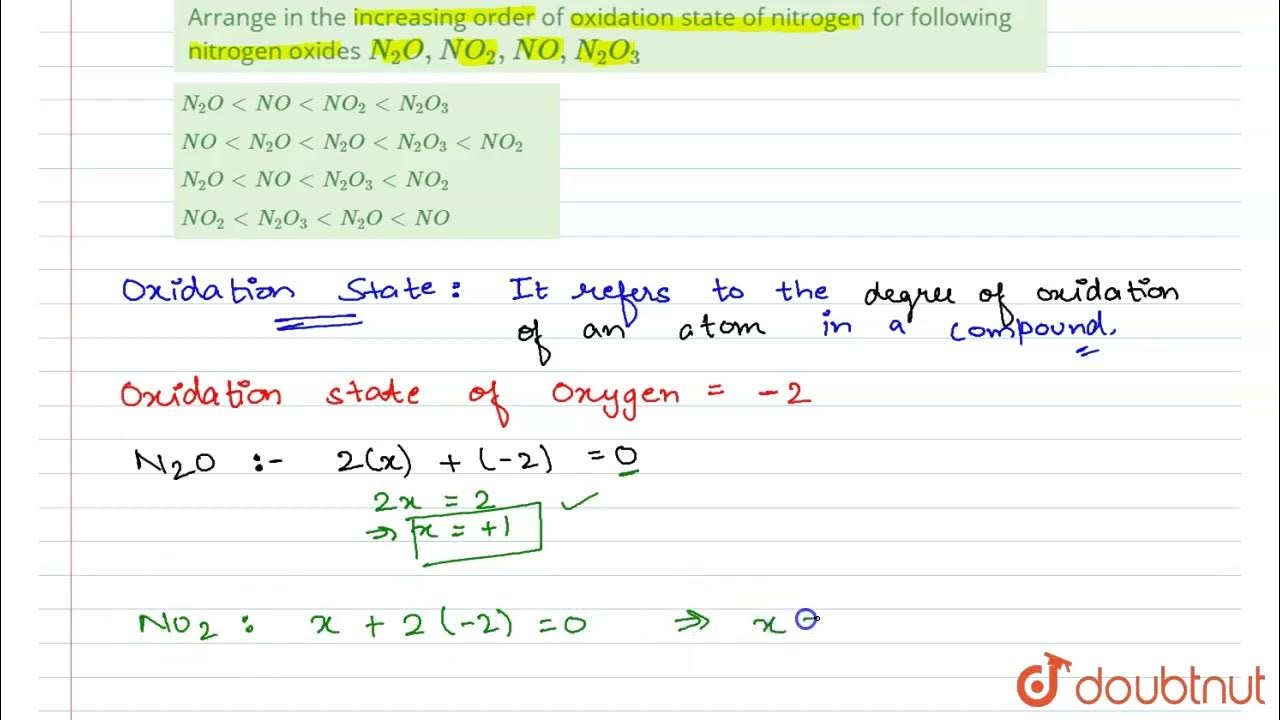 Arrange in the increasing order of oxidation state of nitrogen for following
nitrogen oxides N₂O, NO₂, NO, N₂O₃
N₂O < NO < NO₂ < N₂O₃
NO < N₂O < N₂O < N₂O₃ < NO₂
N₂O < NO < N₂O₃ < NO₂
NO₂ < N₂O₃ < N₂O < NO
Oxidation State : It refers to the degree of oxidation
of an atom in a compound.
Oxidation state of Oxygen = -2
N₂O :- 2(x) + (-2) = 0
2x = 2 ✓
⇒ x = +1
NO₂ : x + 2(-2) = 0 ⇒ x
doubtnut